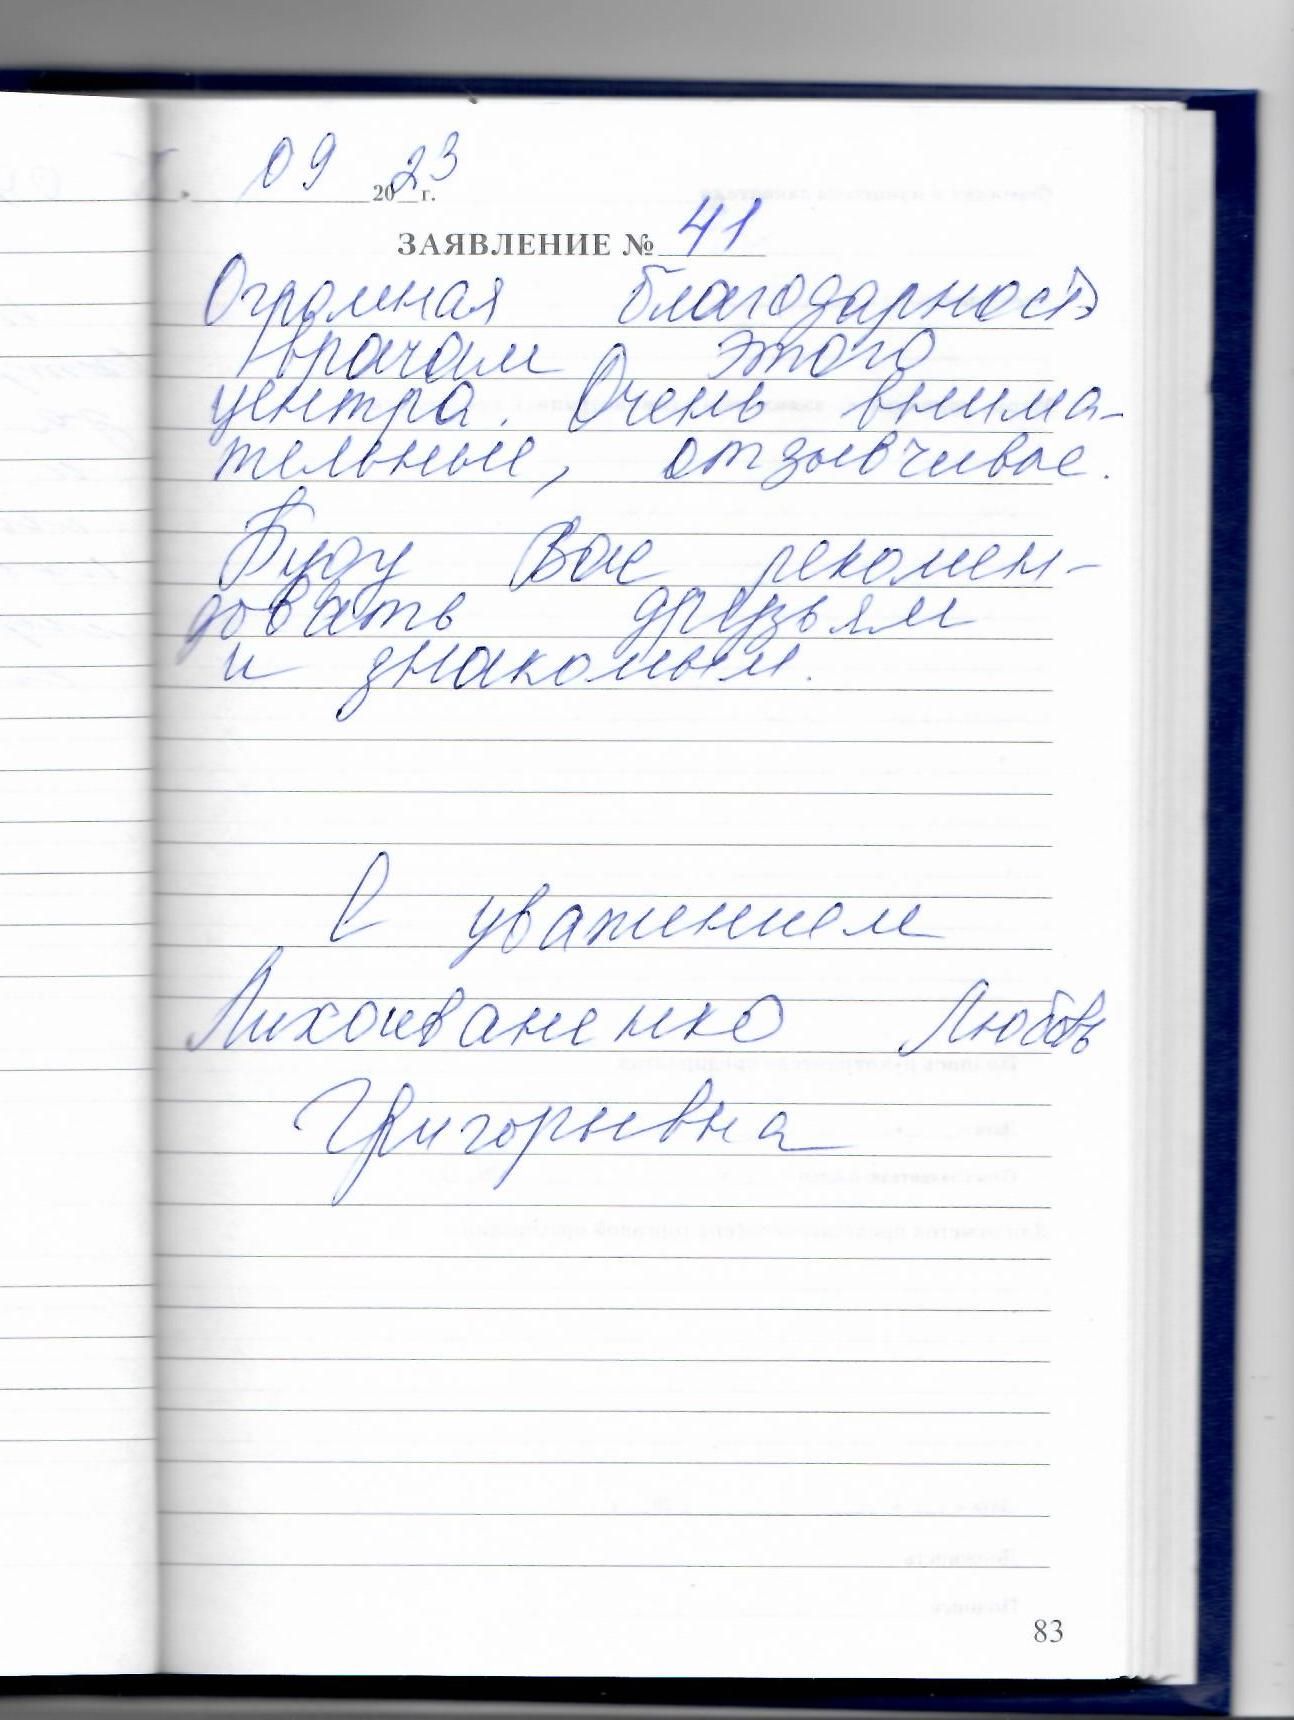 09 2023 г.
ЗАЯВЛЕНИЕ № 41
Огромная благодарность
врачам этого
центра. Очень внима-
тельные, отзывчивые.
Буду Вас рекомен-
довать друзьям
и знакомым.
С уважением
Лихоиваненко Любовь
Григорьевна
83